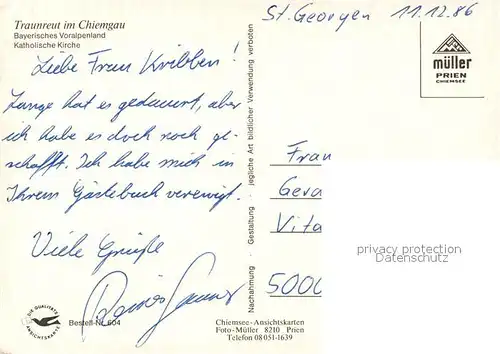 Traunreut im Chiemgau
Bayerisches Voralpenland
Katholische Kirche
St. Georgen 11.12.86
müller
PRIEN
CHIEMSEE
Liebe Frau Kribben!
Lange hat es gedauert, aber
ich habe es doch noch ge-
schafft. Ich habe mich in
Ihrem Gästebuch verewigt.
Viele Grüße
Nachahmung · Gestaltung · jegliche Art bildlicher Verwendung verboten
Frau
Gera
Vita
5000
privacy protection
Datenschutz
DIE QUALITÄTS
ANSICHTSKARTE
Bestell-Nr. 604
Chiemsee-Ansichtskarten
Foto-Müller 8210 Prien
Telefon 08051-1639